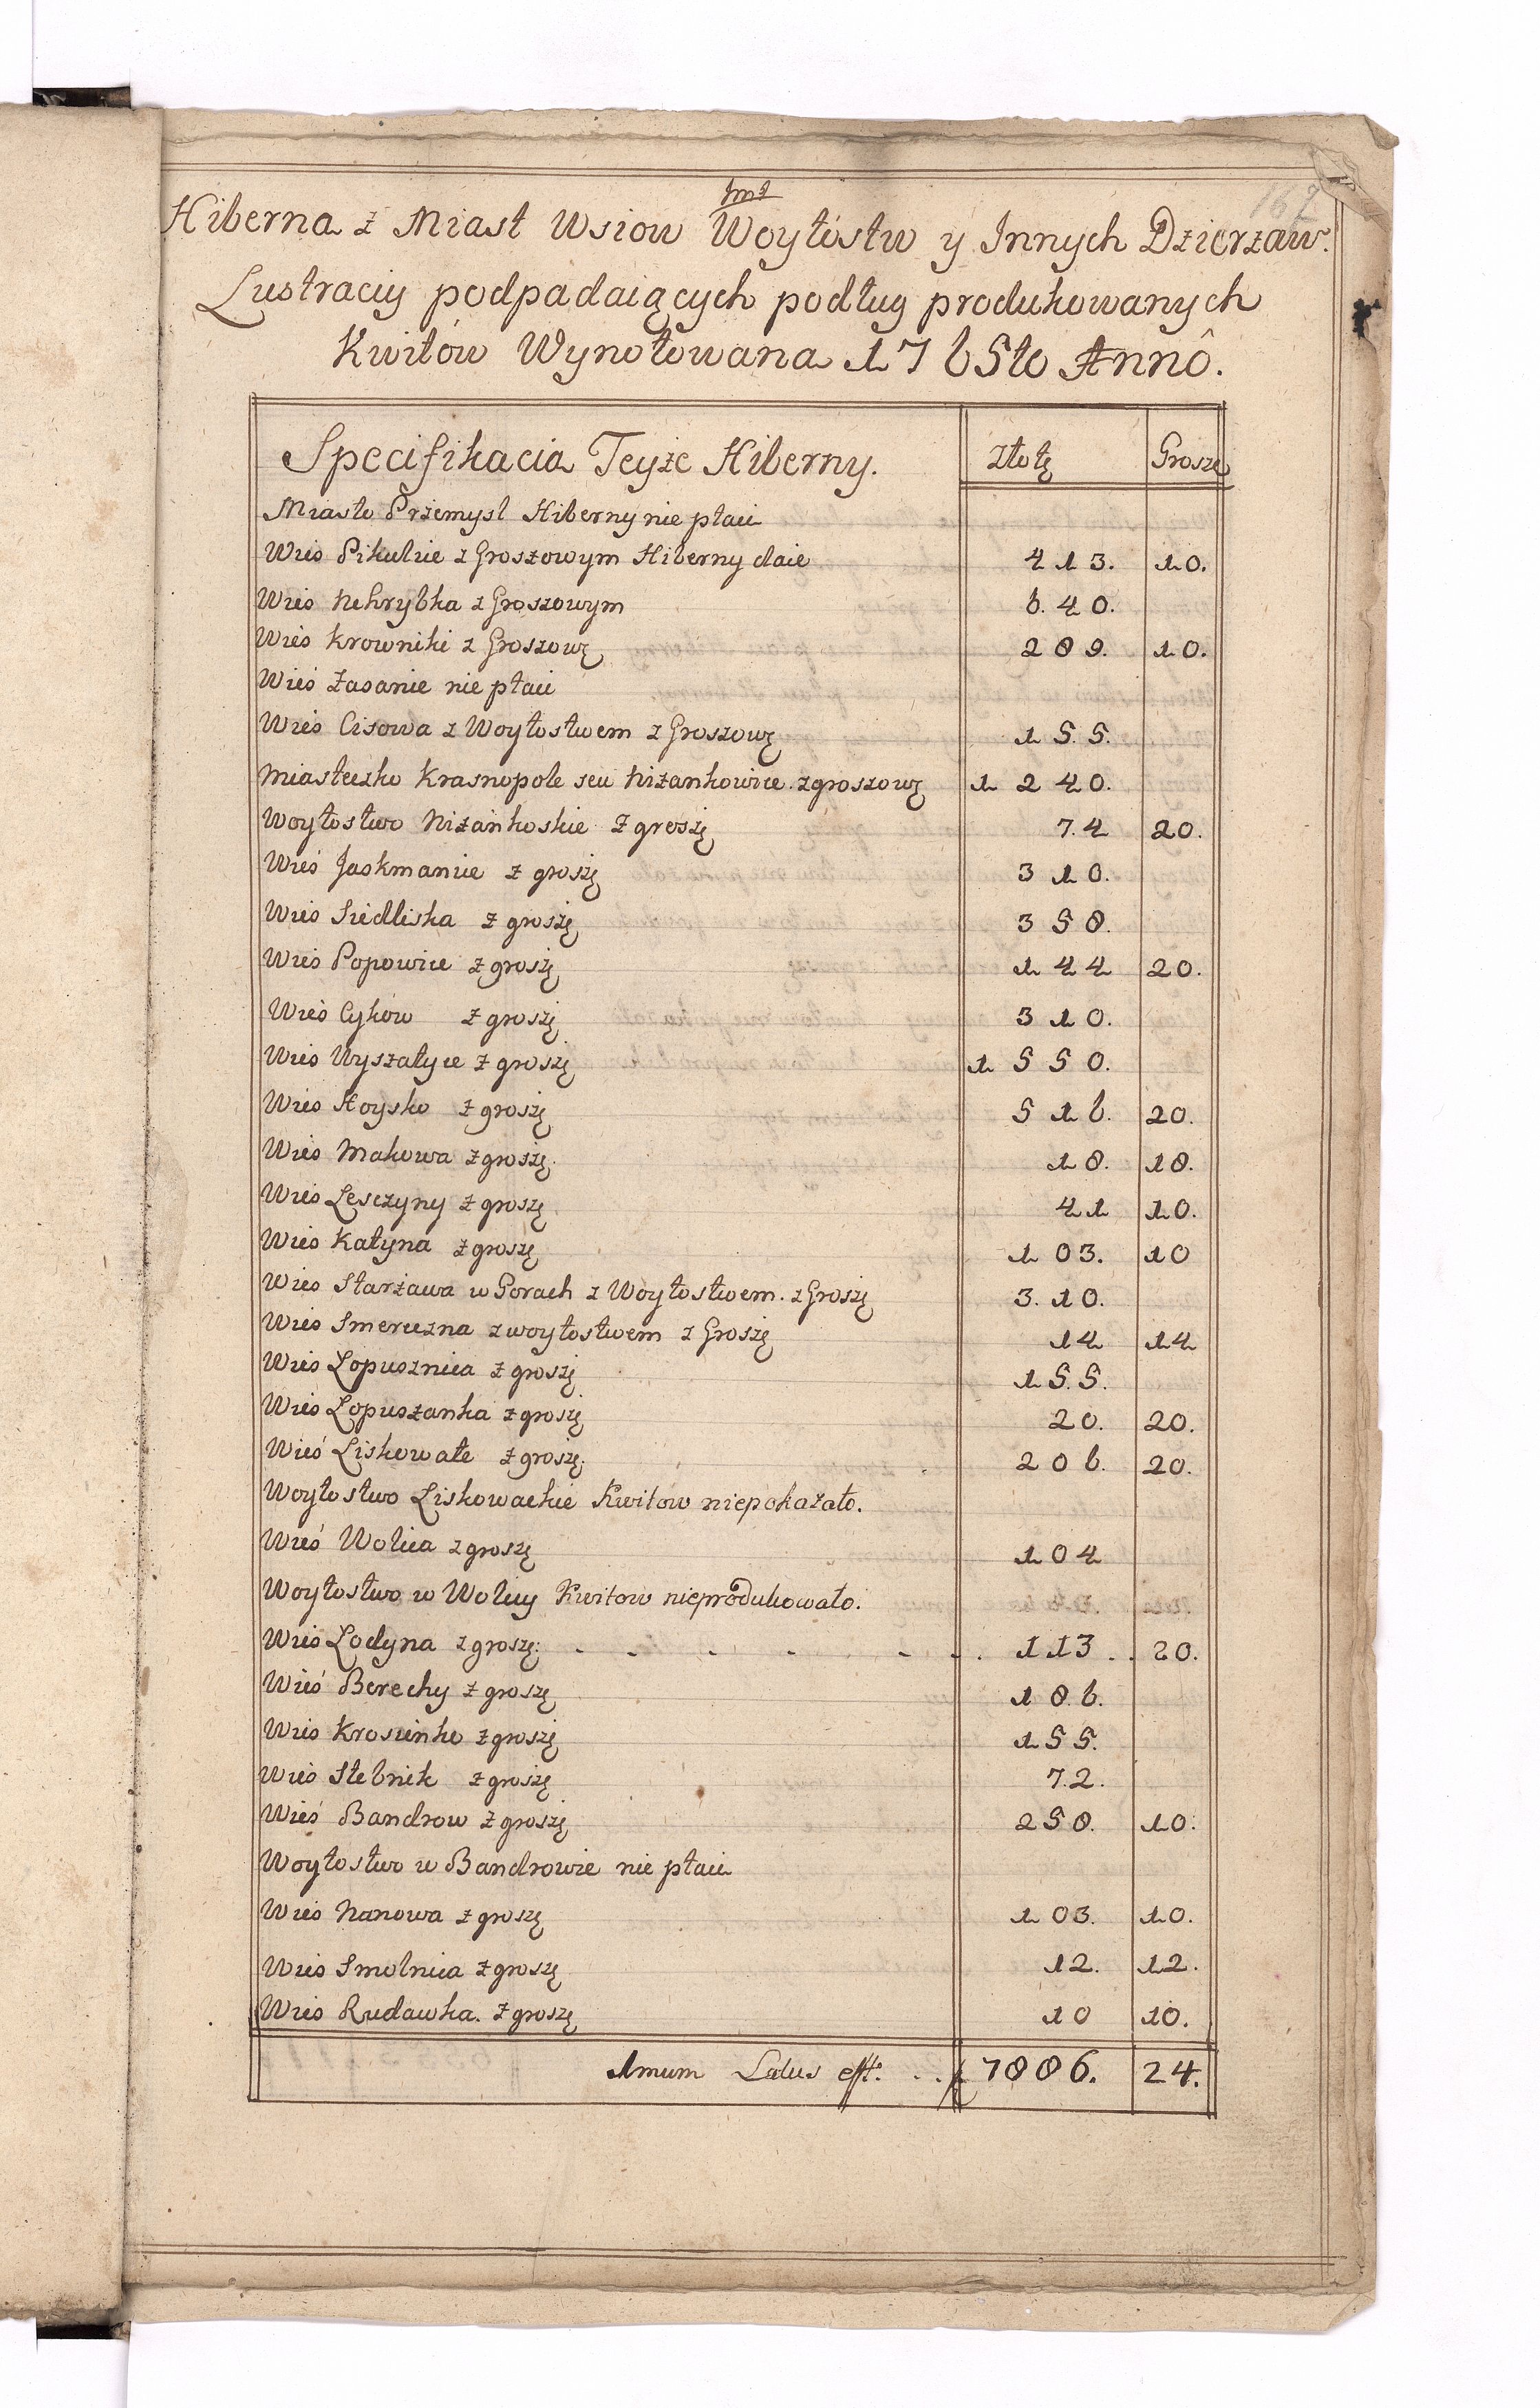 167
Hiberna z Miast Wsiow Woytostw y Innych Dzierzaw.
Lustraciy podpadaiących podług produkowanych
Kwitów Wynotowana 1765to Annô.
Specifikacia Teyże Hiberny. Złotę Grosze
Miasto Przemysl Hiberny nie płaci
Wieś Pikulice z Groszowym Hiberny daie 413. 10.
Wieś Nehrybka z Groszowym 6.40.
Wieś Krowniki z Groszowę 289. 10.
Wieś Zasanie nie płaci
Wieś Cisowa z Woytostwem z Groszowę 155.
Miasteczko Krasnopole seu Niżankowice z groszowę 1240.
Woytostwo Niżańkoskie z groszę 7.4 20.
Wieś Jaskmanice z groszę 310.
Wieś Siedliska z groszę 358.
Wieś Popowice z groszę 144 20.
Wieś Cyków z groszę 310.
Wieś Wyszatyce z groszę 1550.
Wieś Hoysko z groszę 516. 20.
Wieś Makowa z groszę. 18. 18.
Wieś Lesczyny z groszę 41 10.
Wieś Katyna z groszę 103. 10
Wieś Starzawa w Gorach z Woytostwem. z Groszę 3.10.
Wieś Smereczna z woytostwem z Groszę 14 14
Wieś Łopusznica z groszę 155.
Wieś Łopuszanka z groszę 20. 20.
Wieś Liskowate z groszę. 206. 20.
Woytostwo Liskowackie Kwitow niepokazało.
Wieś Wolica z groszę 104
Woytostwo w Wolicy Kwitow nieprodukowało.
Wieś Łodyna z groszę: - - - - - - . 113 . . 20.
Wieś Berechy z groszę 186.
Wieś Krosienko z groszę 155.
Wieś Stebnik z groszę 7.2.
Wieś Bandrow z groszę 258. 10.
Woytostwo w Bandrowie nie płaci
Wieś Nanowa z groszę 103. 10.
Wieś Smolnica z groszę 12. 12.
Wieś Rudawka. z groszę 10 10.
1mum Latus efft. . . f 7886. 24.